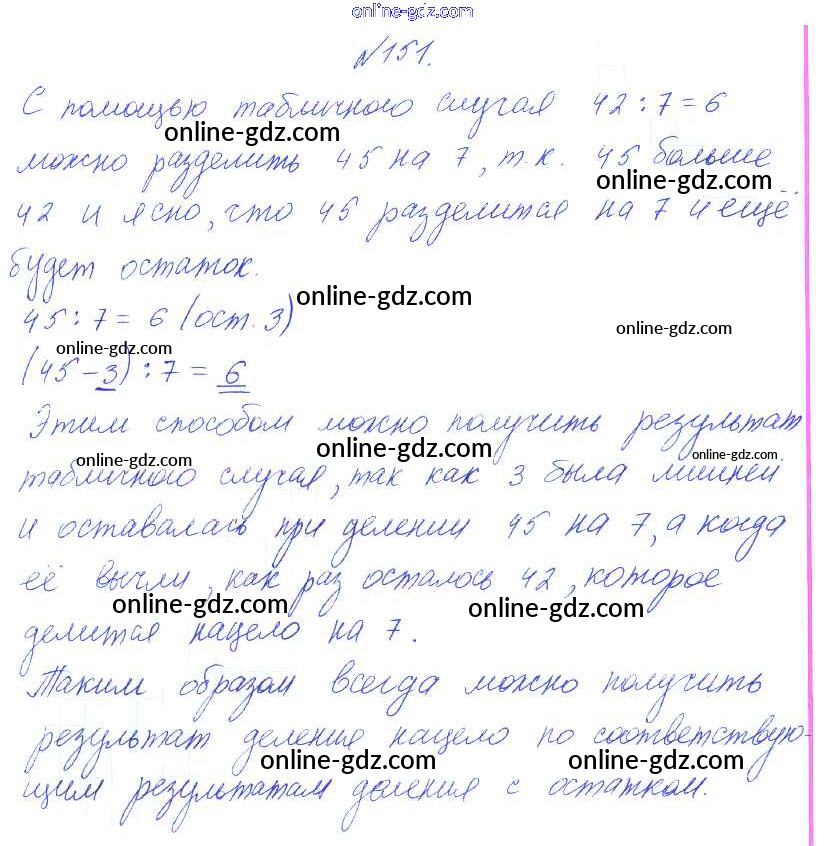 online-gdz.com
№151.
С помощью табличного случая 42 : 7 = 6
online-gdz.com
можно разделить 45 на 7, т.к. 45 больше
online-gdz.com
42 и ясно, что 45 разделится на 7 и ещё
будет остаток.
online-gdz.com
45 : 7 = 6 (ост. 3)
online-gdz.com
online-gdz.com
(45 - 3) : 7 = 6
Этим способом можно получить результат
online-gdz.com
online-gdz.com
online-gdz.com
табличного случая, так как 3 была лишней
и оставалась при делении 45 на 7, а когда
её вычли, как раз осталось 42, которое
online-gdz.com
online-gdz.com
делится нацело на 7.
Таким образом всегда можно получить
результат деления нацело по соответствую-
online-gdz.com
online-gdz.com
щим результатам деления с остатком.
online-gdz.com
online-gdz.com